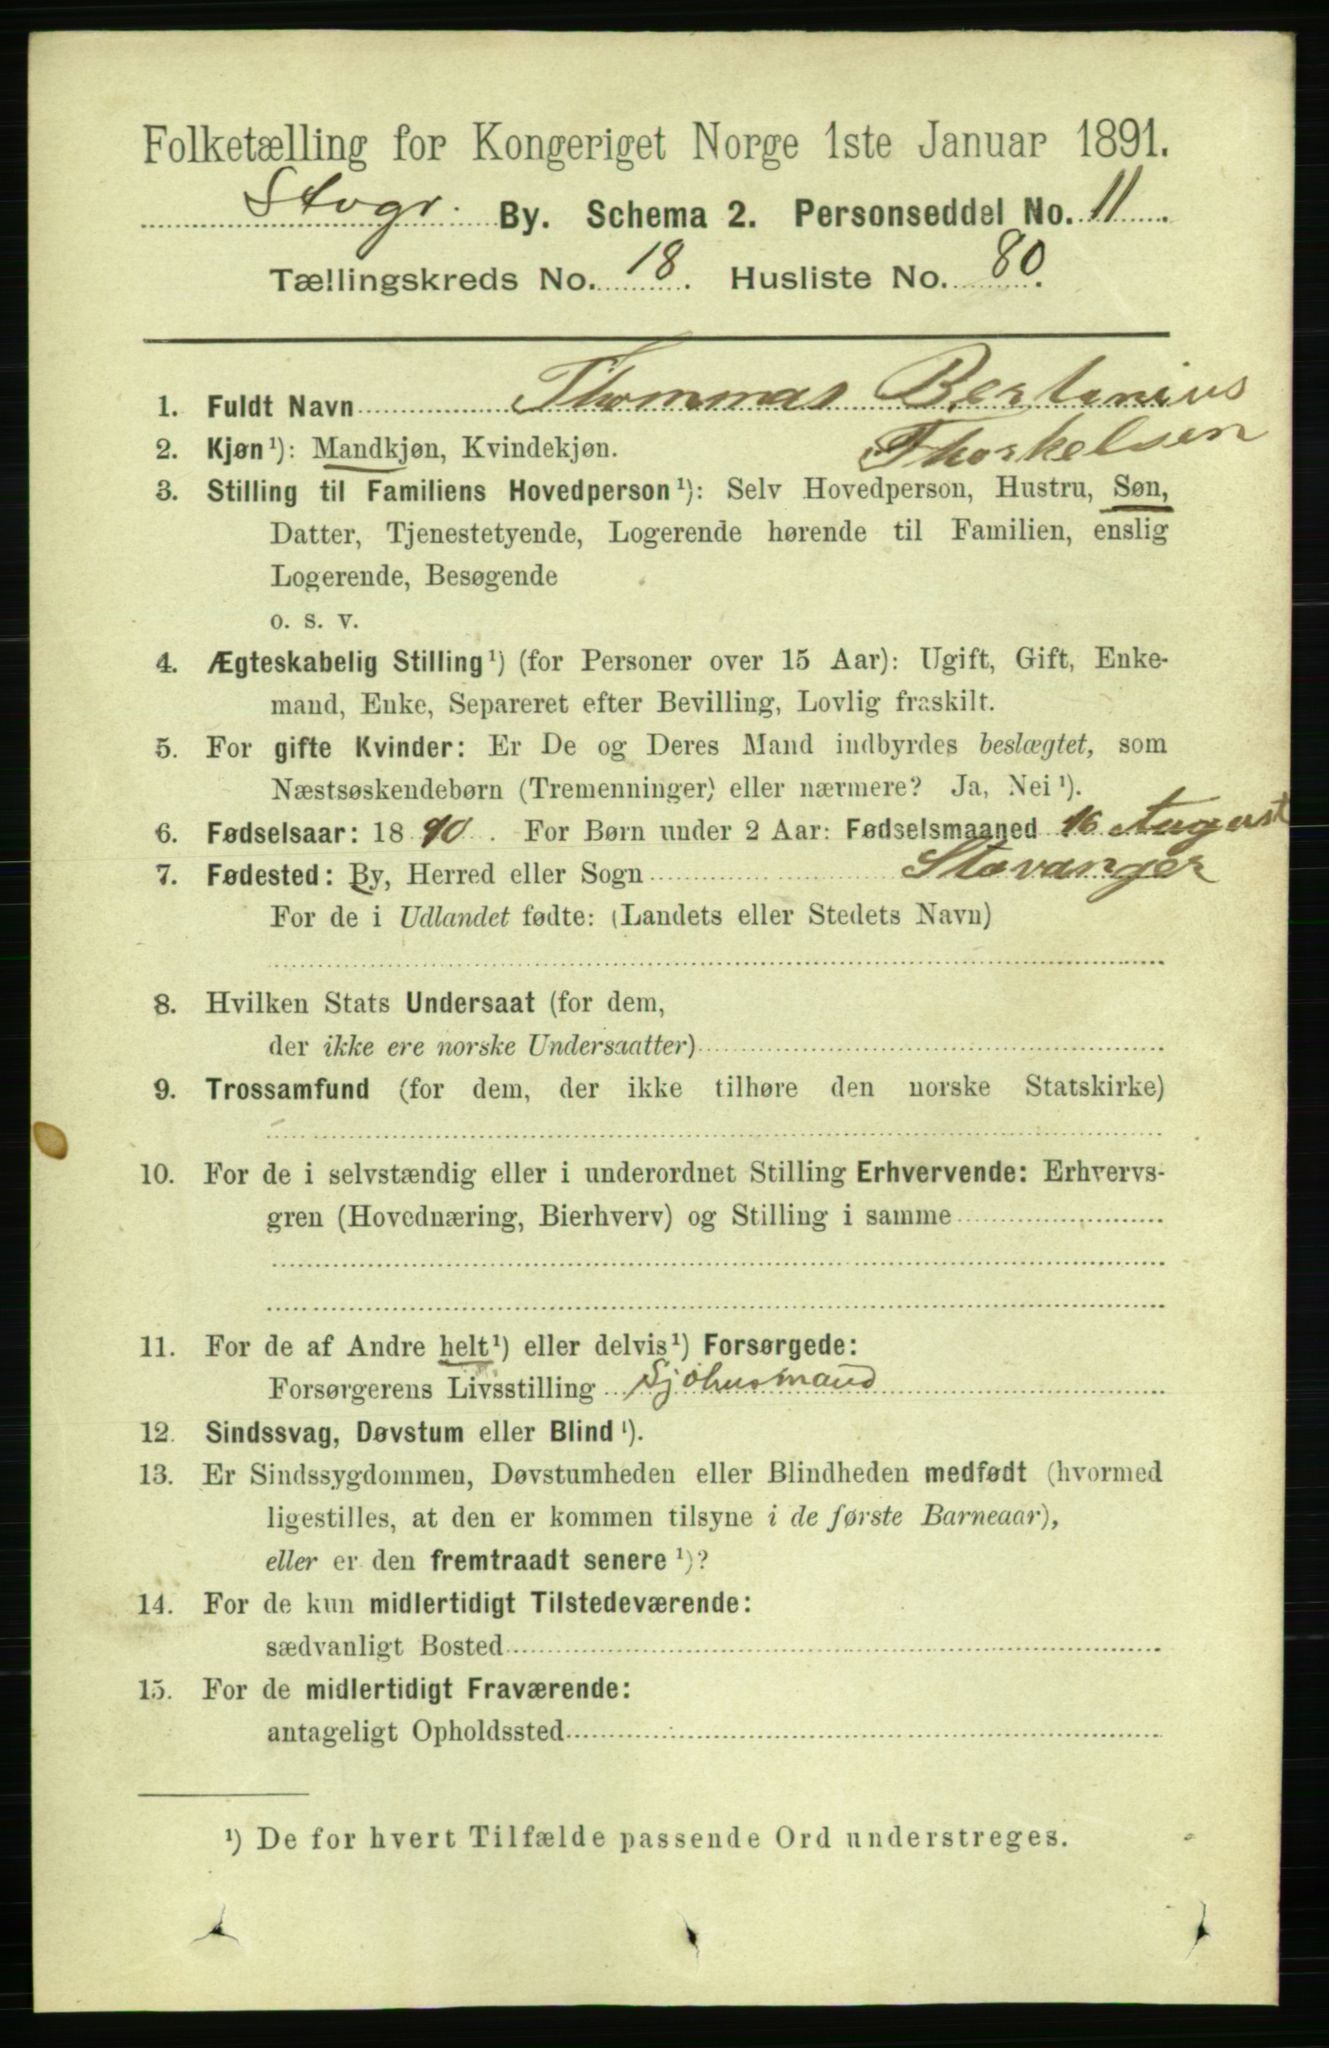 Folketælling for Kongeriget Norge 1ste Januar 1891.
Stvgr. By. Schema 2. Personseddel No. 11.
Tællingskreds No. 18. Husliste No. 80.
1. Fuldt Navn Thommas Bertinius
Thorkelsen
2. Kjøn¹): Mandkjøn, Kvindekjøn.
3. Stilling til Familiens Hovedperson¹): Selv Hovedperson, Hustru, Søn,
Datter, Tjenestetyende, Logerende hørende til Familien, enslig
Logerende, Besøgende
o. s. v.
4. Ægteskabelig Stilling¹) (for Personer over 15 Aar): Ugift, Gift, Enke-
mand, Enke, Separeret efter Bevilling, Lovlig fraskilt.
5. For gifte Kvinder: Er De og Deres Mand indbyrdes beslægtet, som
Næstsøskendebørn (Tremenninger) eller nærmere? Ja, Nei¹).
6. Fødselsaar: 1890. For Børn under 2 Aar: Fødselsmaaned 16 August
7. Fødested: By, Herred eller Sogn Stavanger
For de i Udlandet fødte: (Landets eller Stedets Navn)
8. Hvilken Stats Undersaat (for dem,
der ikke ere norske Undersaatter)
9. Trossamfund (for dem, der ikke tilhøre den norske Statskirke)
10. For de i selvstændig eller i underordnet Stilling Erhvervende: Erhvervs-
gren (Hovednæring, Bierhverv) og Stilling i samme
11. For de af Andre helt¹) eller delvis¹) Forsørgede:
Forsørgerens Livsstilling Sjøhusmand
12. Sindssvag, Døvstum eller Blind¹).
13. Er Sindssygdommen, Døvstumheden eller Blindheden medfødt (hvormed
ligestilles, at den er kommen tilsyne i de første Barneaar),
eller er den fremtraadt senere¹)?
14. For de kun midlertidigt Tilstedeværende:
sædvanligt Bosted
15. For de midlertidigt Fraværende:
antageligt Opholdssted
¹) De for hvert Tilfælde passende Ord understreges.